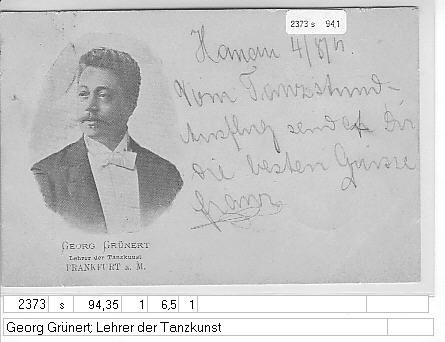 2373 s 94,1
Hanau 4/8/11
Vom Tanzstund-
Ausflug sendet Dir
die besten Grüsse
Franz
GEORG GRÜNERT
Lehrer der Tanzkunst
FRANKFURT a. M.
2373 s 94,35 1 6,5 1
Georg Grünert; Lehrer der Tanzkunst